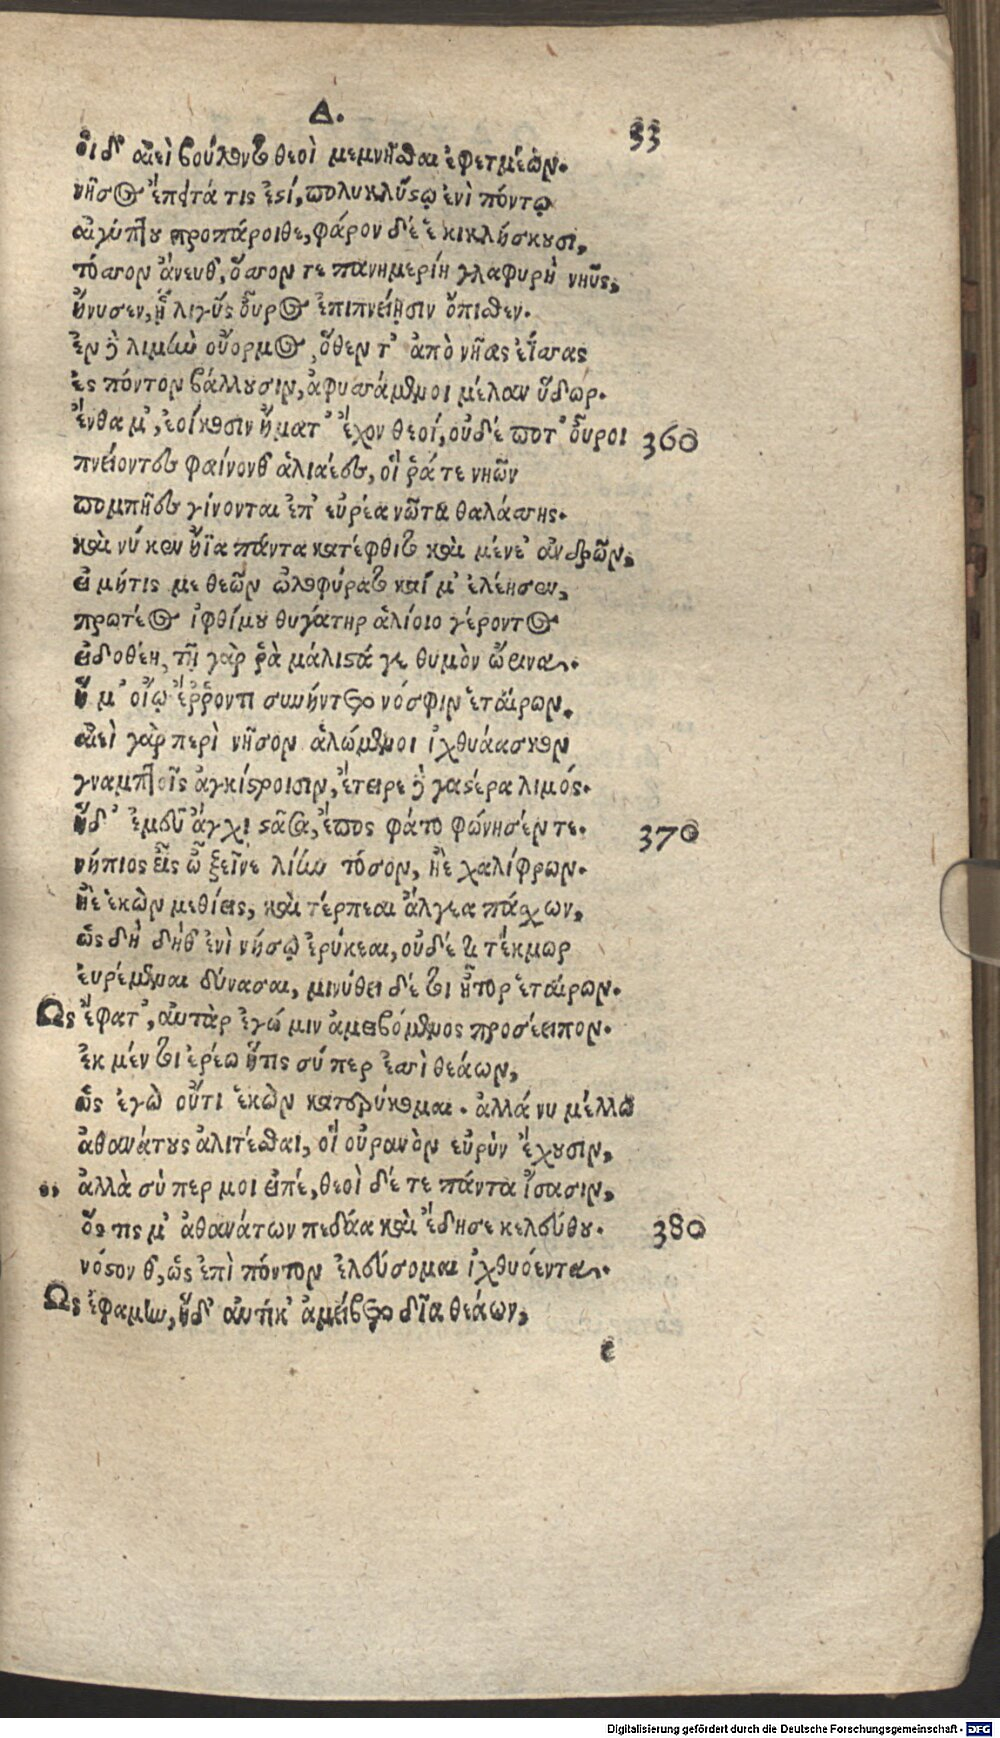 Δ.
33
οἱ δ' αἰεὶ βούλοντο θεοὶ μεμνῆσθαι ἐφετμέων.
νῆσος ἔπειτά τις ἐστί, πολυκλύστῳ ἐνὶ πόντῳ
αἰγύπτου προπάροιθε, φάρον δέ ἑ κικλήσκουσι,
τόσσον ἄνευθ', ὅσσον τε πανημερίη γλαφυρὴ νηῦς,
ἤνυσεν, ᾗ λιγὺς οὖρος ἐπιπνείῃσιν ὄπισθεν.
ἐν δὲ λιμὴν εὔορμος, ὅθεν τ' ἀπὸ νῆας ἐΐσας
ἐς πόντον βάλλουσιν, ἀφυσσάμενοι μέλαν ὕδωρ.
ἔνθα μ', ἐείκοσιν ἤματ' ἔχον θεοί, οὐδέ ποτ' οὖροι 360
πνείοντες φαίνονθ' ἁλιαέες, οἵ ῥά τε νηῶν
πομπῆες γίνονται ἐπ' εὐρέα νῶτα θαλάσσης.
καὶ νύ κεν ἤϊα πάντα κατέφθιτο καὶ μένε' ἀνδρῶν,
εἰ μήτις με θεῶν ὠλοφύρατο καί μ' ἐλέησεν,
πρωτέος ἰφθίμου θυγάτηρ ἁλίοιο γέροντος
εἰδοθέη, τῇ γάρ ῥὰ μάλιστά γε θυμὸν ὤεινα.
ἥ μ' οἴῳ ἔῤῥοντι συνήντετο νόσφιν ἑταίρων,
αἰεὶ γὰρ περὶ νῆσον ἁλώμενοι ἰχθυάασκον
γναμπτοῖς ἀγκίστροισιν, ἔτειρε δὲ γαστέρα λιμός.
ἡ δ' ἐμεῦ ἄγχι στᾶσα, ἔπος φάτο φώνησέν τε. 370
νήπιος εἷς ὦ ξεῖνε λίην τόσον, ἠὲ χαλίφρων.
ἠὲ ἑκὼν μεθίεις, καὶ τέρπεαι ἄλγεα πάσχων,
ὡς δὴ δήθ' ἐνὶ νήσῳ ἐρύκεαι, οὐδέ τι τέκμωρ
εὑρέμεναι δύνασαι, μινύθει δέ τοι ἦτορ ἑταίρων.
Ως ἔφατ', αὐτὰρ ἐγώ μιν ἀμειβόμενος προσέειπον.
ἐκ μέν τοι ἐρέω ἥτις σύ περ ἐσσὶ θεάων,
ὡς ἐγὼ οὔτι ἑκὼν κατερύκομαι. ἀλλά νυ μέλλω
ἀθανάτους ἀλιτέσθαι, οἳ οὐρανὸν εὐρὺν ἔχουσιν,
,, ἀλλὰ σύ περ μοι εἰπέ, θεοὶ δέ τε πάντα ἴσασιν,
ὅς τις μ' ἀθανάτων πεδάᾳ καὶ ἔδησε κελεύθου. 380
νόστον θ', ὡς ἐπὶ πόντον ἐλεύσομαι ἰχθυόεντα.
Ως ἐφάμην, ἡ δ' αὐτίκ' ἀμείβετο δῖα θεάων,
e
Digitalisierung gefördert durch die Deutsche Forschungsgemeinschaft - DFG